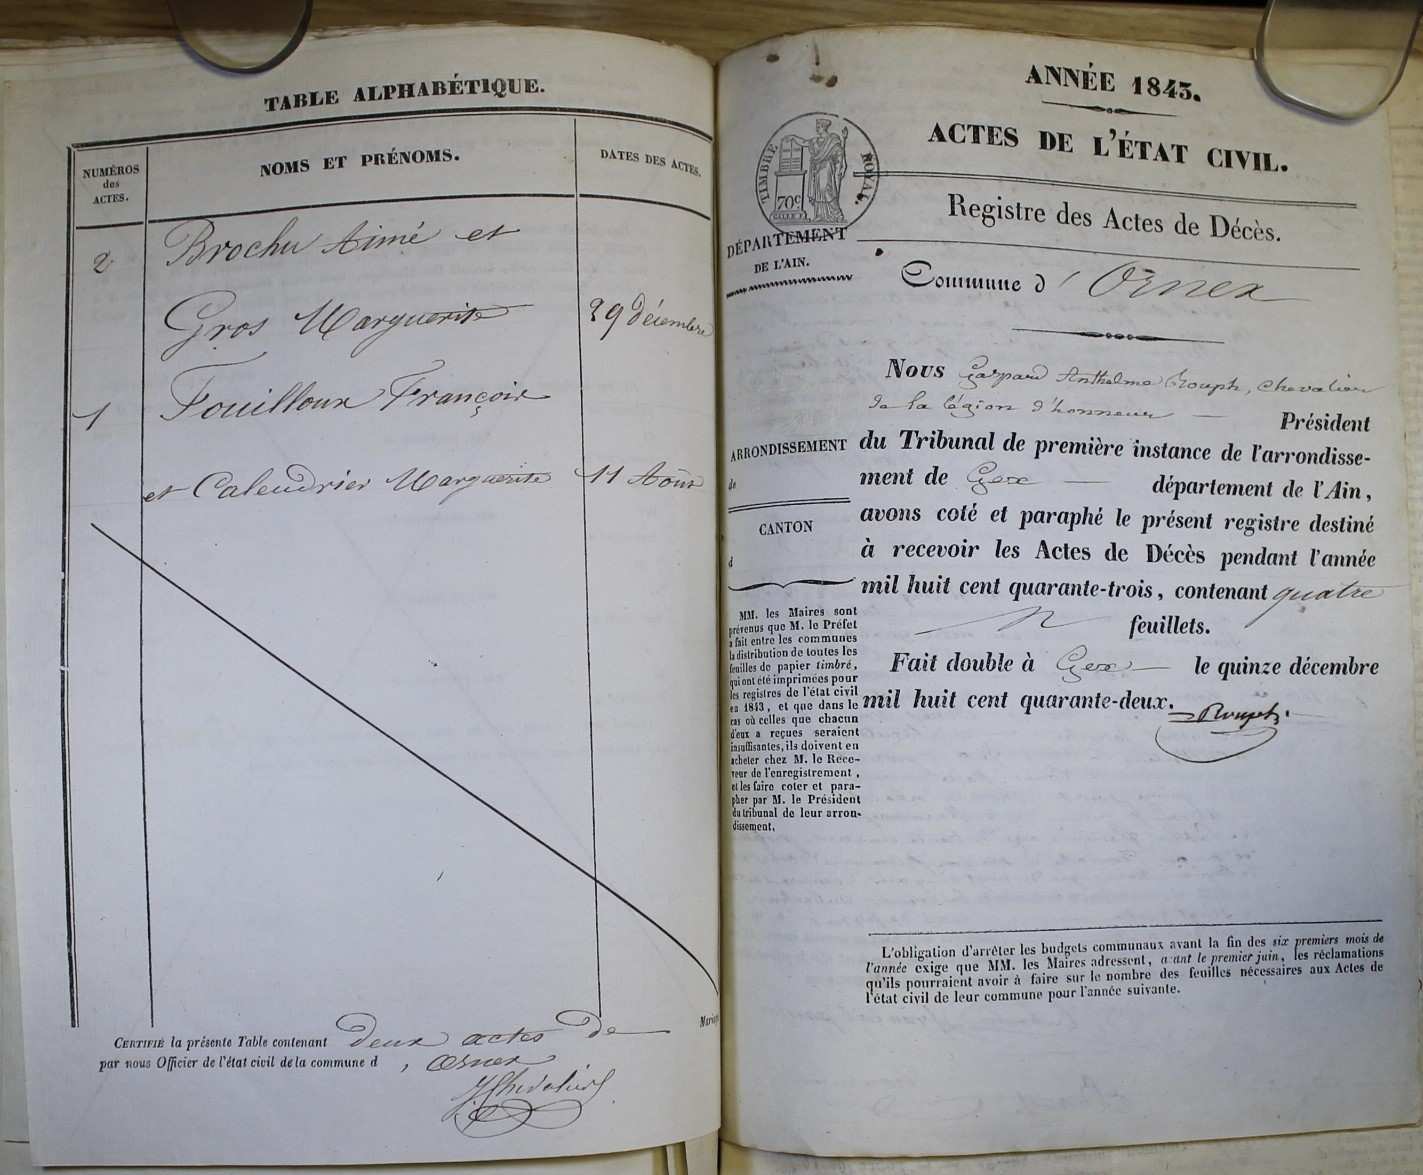 TABLE ALPHABÉTIQUE.
NUMÉROS
des
ACTES.
NOMS ET PRÉNOMS.
DATES DES ACTES.
2 Brochu Aimé et
Gros Marguerite 29 décembre
1 Fouilloux François
et Calendrier Marguerite 11 Août
CERTIFIÉ la présente Table contenant deux actes de Mariage
par nous Officier de l'état civil de la commune d , Ornex
J. Chevalier
ANNÉE 1843.
ACTES DE L'ÉTAT CIVIL.
TIMBRE ROYAL.
70c
Registre des Actes de Décès.
DÉPARTEMENT
DE L'AIN.
Commune d'Ornex
Nous Gaspard Anthelme Rouph, chevalier
de la légion d'honneur — Président
du Tribunal de première instance de l'arrondisse-
ment de Gex — département de l'Ain,
avons coté et paraphé le présent registre destiné
à recevoir les Actes de Décès pendant l'année
mil huit cent quarante-trois, contenant quatre
feuillets.
Fait double à Gex — le quinze décembre
mil huit cent quarante-deux.
Rouph
ARRONDISSEMENT
de
CANTON
d
MM. les Maires sont
prévenus que M. le Préfet
a fait entre les communes
la distribution de toutes les
feuilles de papier timbré,
qui ont été imprimées pour
les registres de l'état civil
en 1843, et que dans le
cas où celles que chacun
d'eux a reçues seraient
insuffisantes, ils doivent en
acheter chez M. le Rece-
veur de l'enregistrement,
et les faire coter et para-
pher par M. le Président
du tribunal de leur arron-
dissement.
L'obligation d'arrêter les budgets communaux avant la fin des six premiers mois de
l'année exige que MM. les Maires adressent, avant le premier juin, les réclamations
qu'ils pourraient avoir à faire sur le nombre des feuilles nécessaires aux Actes de
l'état civil de leur commune pour l'année suivante.